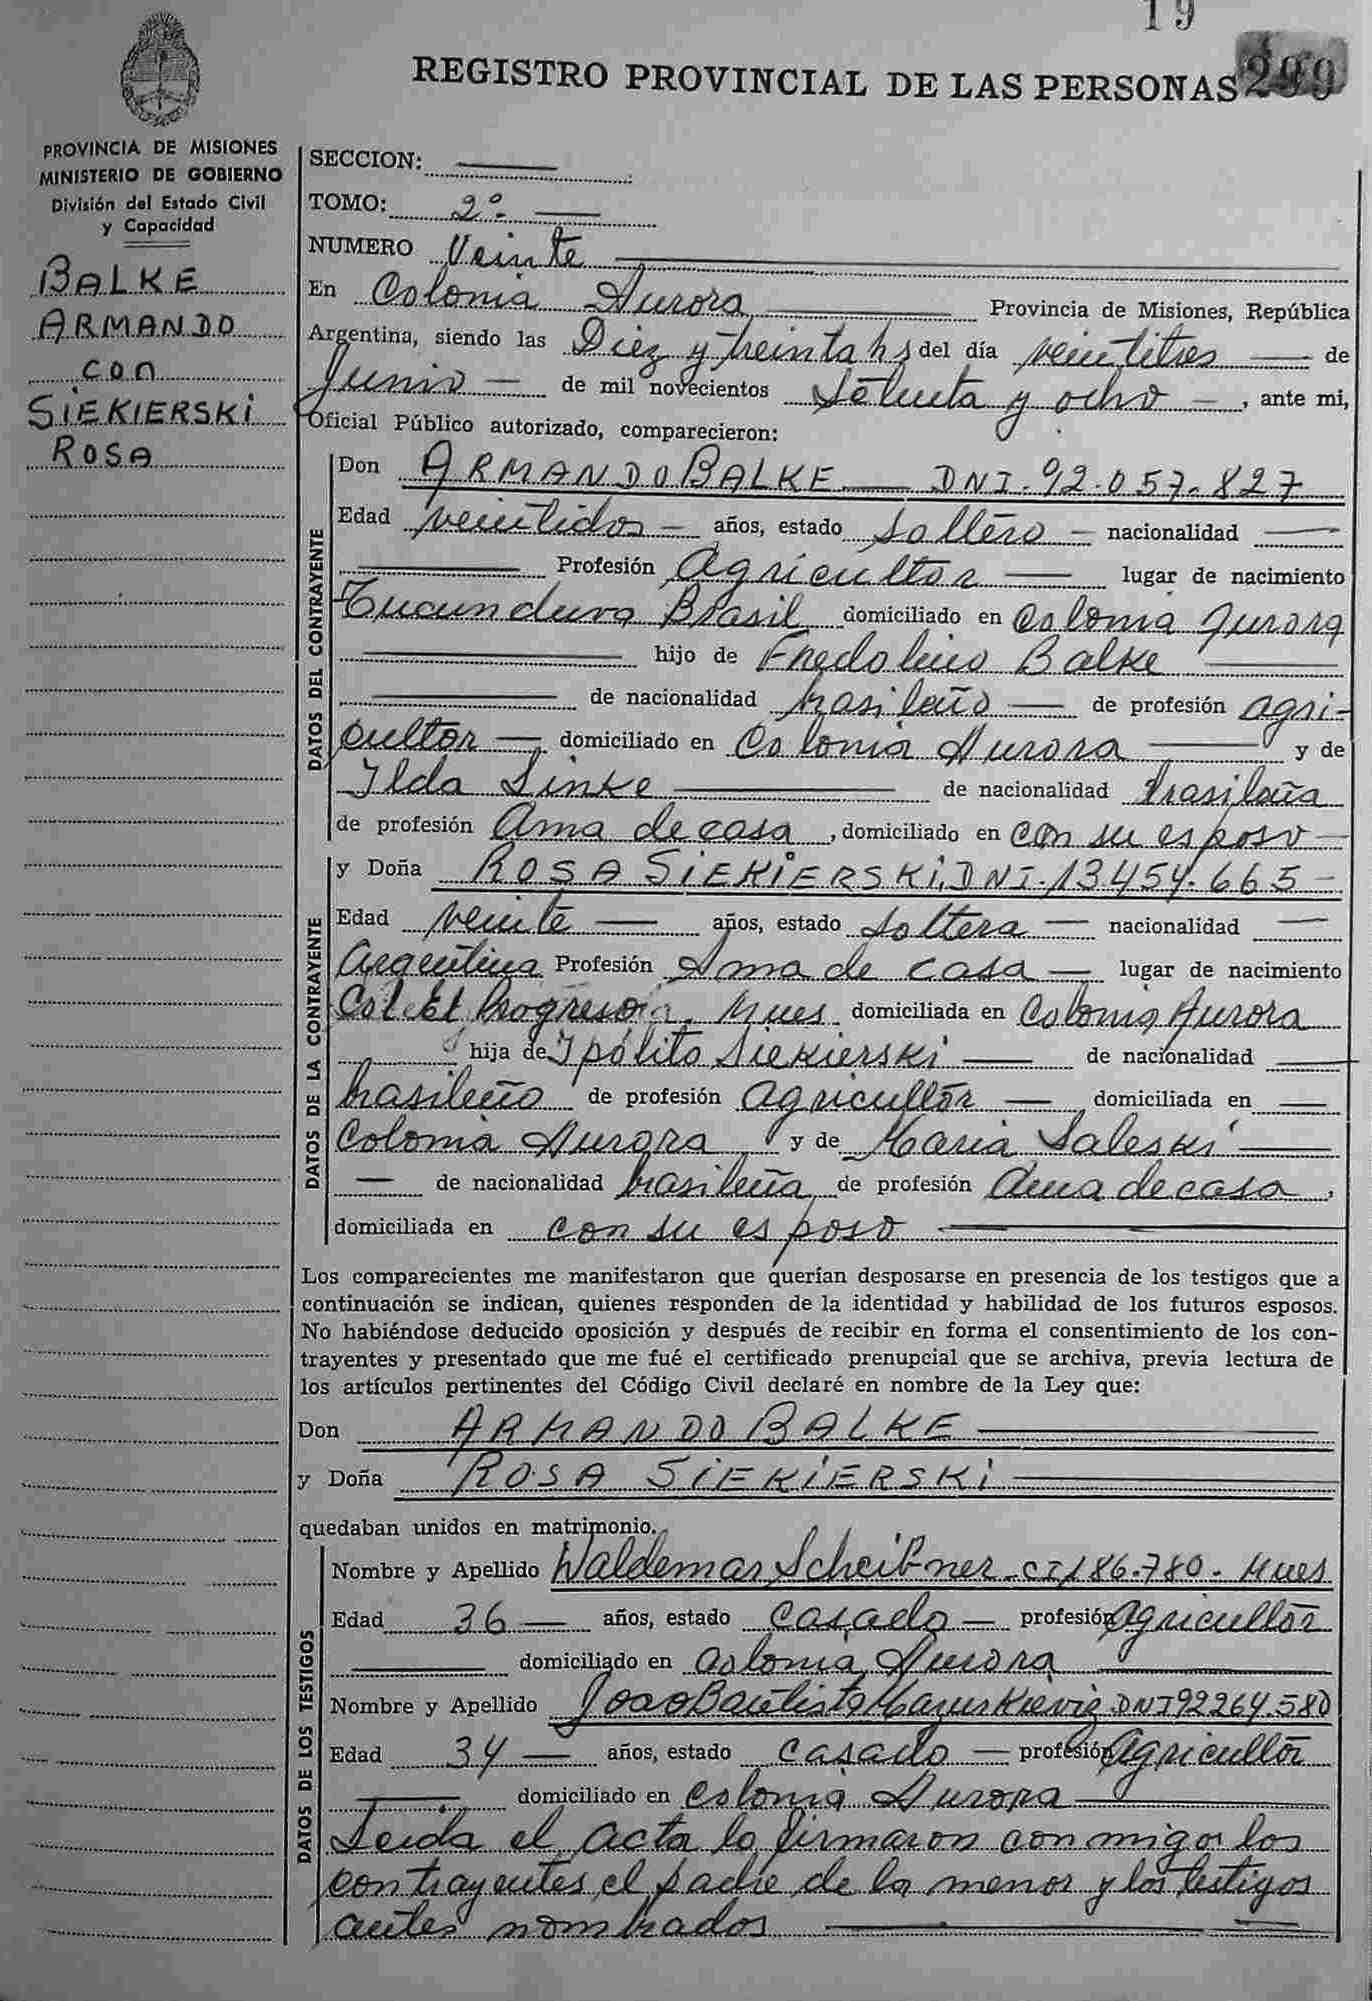 19
REGISTRO PROVINCIAL DE LAS PERSONAS 299
PROVINCIA DE MISIONES
MINISTERIO DE GOBIERNO
División del Estado Civil
y Capacidad
BALKE
ARMANDO
con
SIEKIERSKI
ROSA
SECCION:
TOMO: 2º
NUMERO Veinte
En Colonia Aurora Provincia de Misiones, República
Argentina, siendo las Diez y treinta hs del día veintitres de
Junio de mil novecientos setenta y ocho, ante mi,
Oficial Público autorizado, comparecieron:
DATOS DEL CONTRAYENTE
Don ARMANDO BALKE DNI. 92.057.827
Edad veintidos años, estado soltero nacionalidad
Profesión Agricultor lugar de nacimiento
Tucunduva Brasil domiciliado en Colonia Aurora
hijo de Fredolino Balke
de nacionalidad brasileño de profesión agri-
cultor domiciliado en Colonia Aurora y de
Ilda Linke de nacionalidad brasileña
de profesión Ama de casa, domiciliado en con su esposo
DATOS DE LA CONTRAYENTE
y Doña ROSA SIEKIERSKI, DNI. 13454.665
Edad veinte años, estado soltera nacionalidad
Argentina Profesión Ama de casa lugar de nacimiento
Col. El Progreso Mnes domiciliada en Colonia Aurora
hija de Ipólito Siekierski de nacionalidad
brasileño de profesión agricultor domiciliada en
Colonia Aurora y de Maria Saleski
de nacionalidad brasileña de profesión Ama de casa,
domiciliada en con su esposo
Los comparecientes me manifestaron que querían desposarse en presencia de los testigos que a
continuación se indican, quienes responden de la identidad y habilidad de los futuros esposos.
No habiéndose deducido oposición y después de recibir en forma el consentimiento de los con-
trayentes y presentado que me fué el certificado prenupcial que se archiva, previa lectura de
los artículos pertinentes del Código Civil declaré en nombre de la Ley que:
Don ARMANDO BALKE
y Doña ROSA SIEKIERSKI
quedaban unidos en matrimonio.
DATOS DE LOS TESTIGOS
Nombre y Apellido Waldemar Scheibner CI 186.780. Mnes
Edad 36 años, estado casado profesión agricultor
domiciliado en Colonia Aurora
Nombre y Apellido Joao Bautista Mazurkieviz DNI 92264.580
Edad 34 años, estado casado profesión Agricultor
domiciliado en Colonia Aurora
Leida el acta la firmaron conmigo los
contrayentes, el padre de la menor y los testigos
antes nombrados